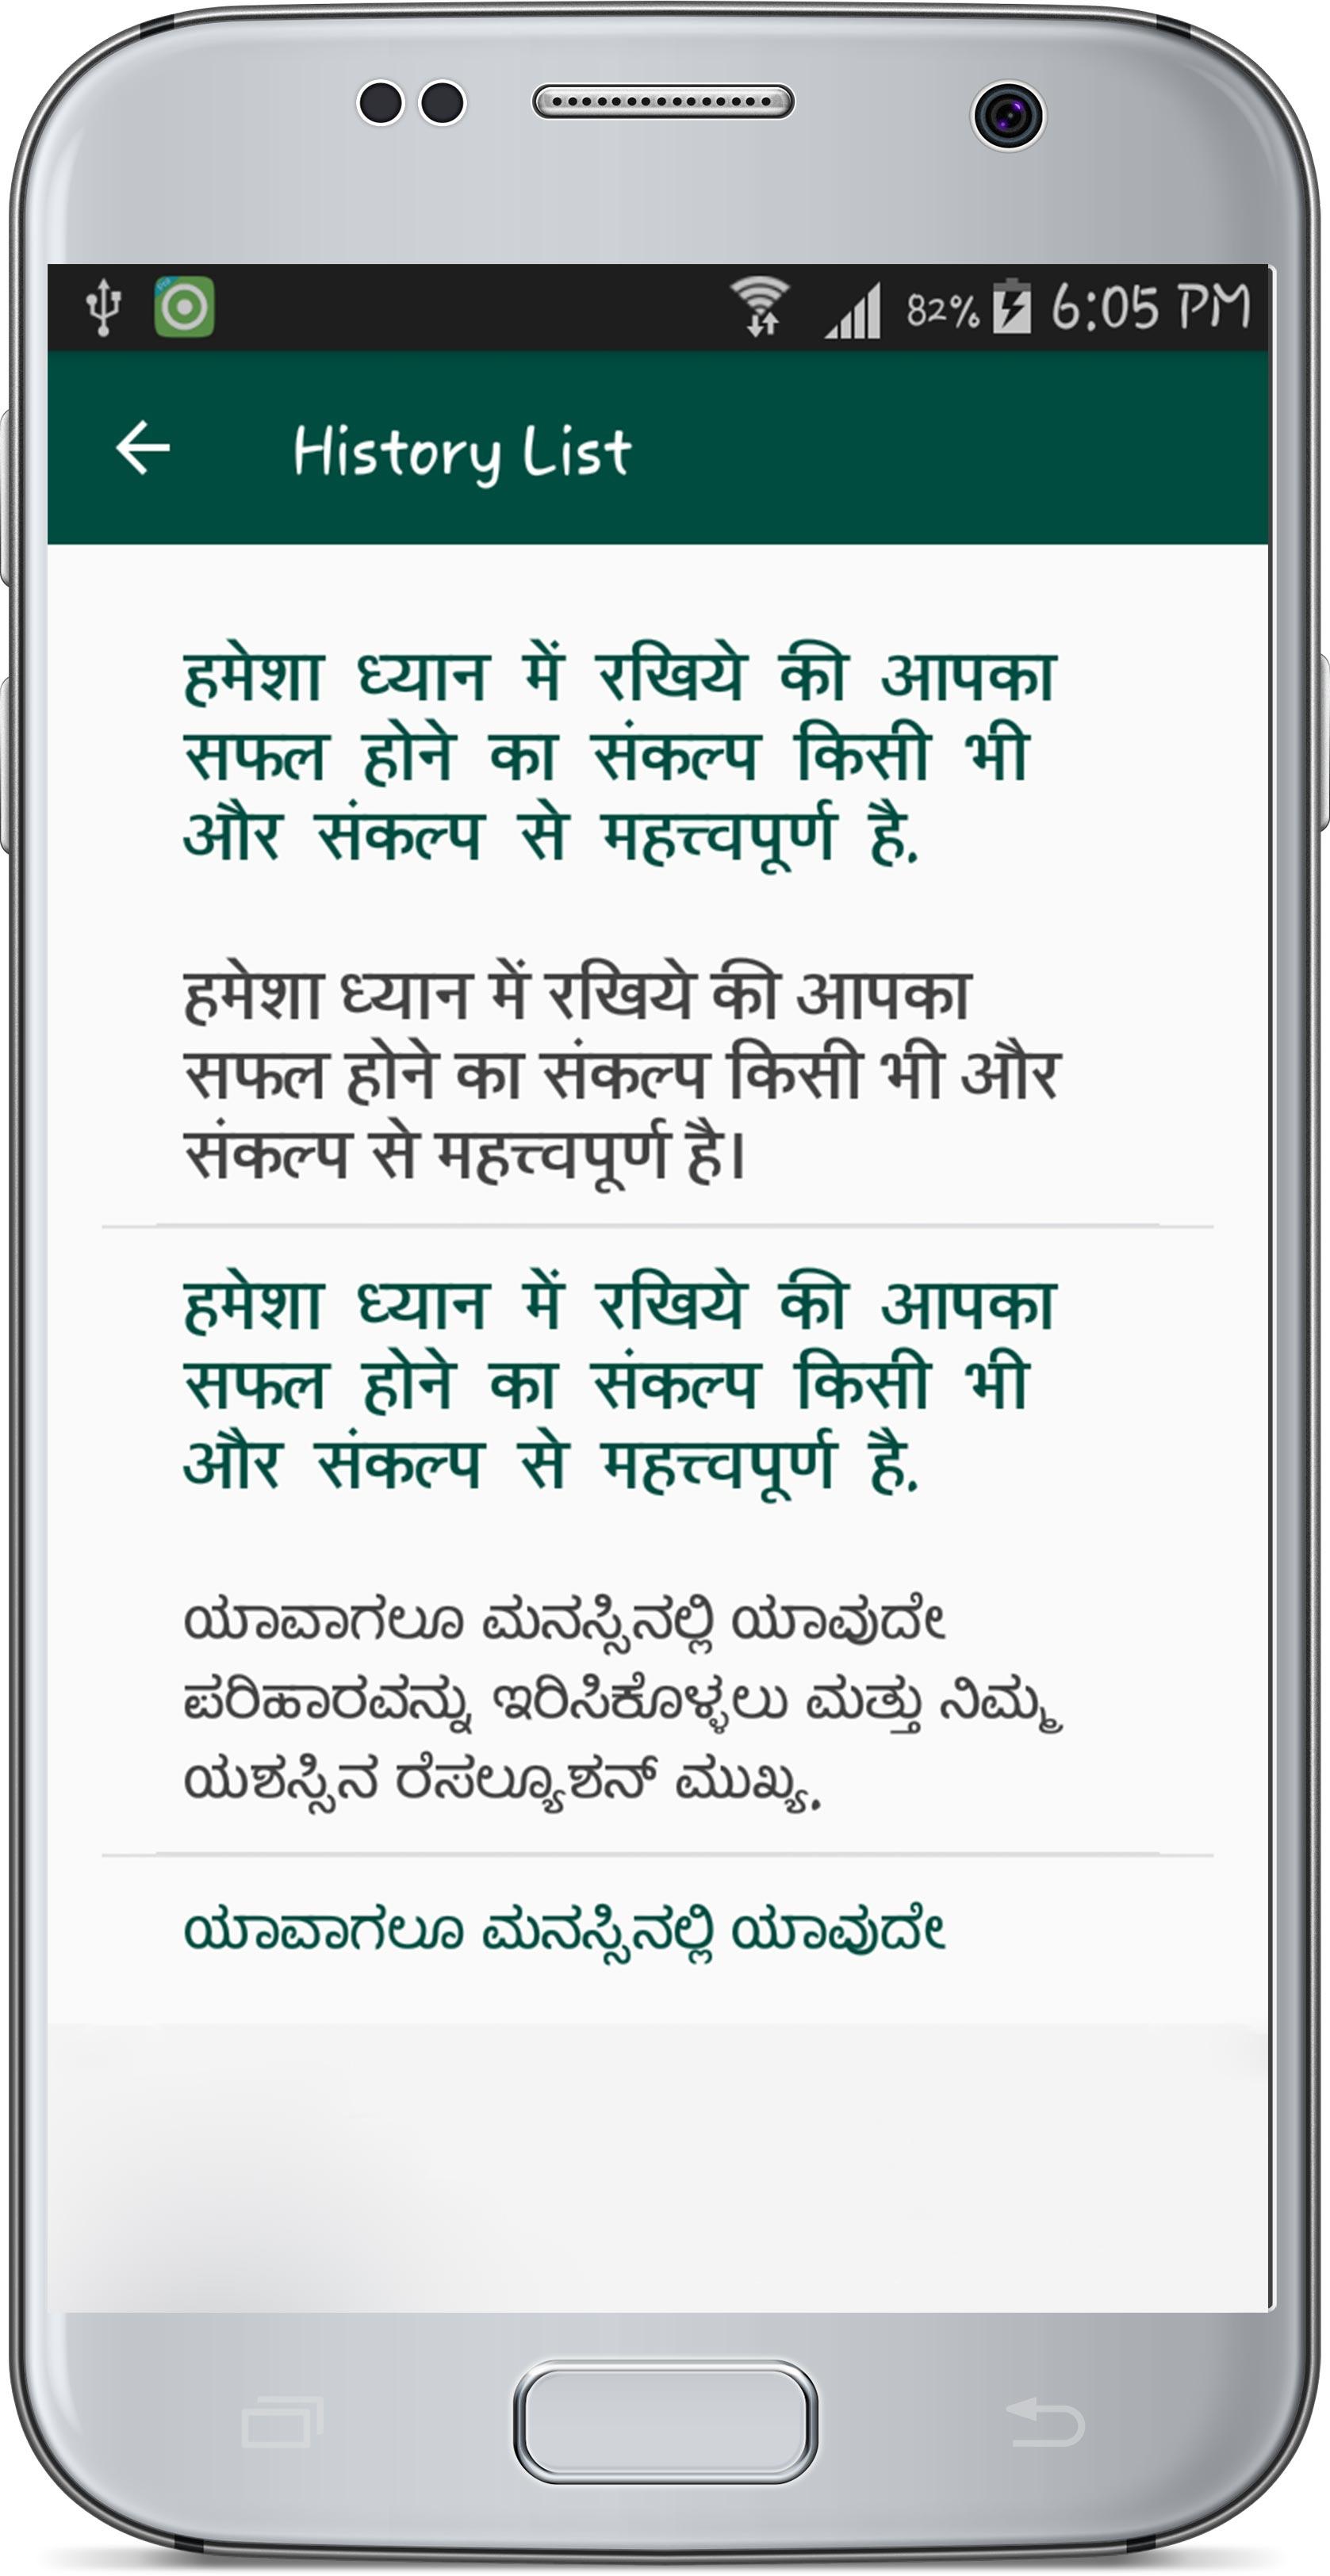 82% 6:05 PM
History List
हमेशा ध्यान में रखिये की आपका
सफल होने का संकल्प किसी भी
और संकल्प से महत्त्वपूर्ण है.
हमेशा ध्यान में रखिये की आपका
सफल होने का संकल्प किसी भी और
संकल्प से महत्त्वपूर्ण है।
हमेशा ध्यान में रखिये की आपका
सफल होने का संकल्प किसी भी
और संकल्प से महत्त्वपूर्ण है.
ಯಾವಾಗಲೂ ಮನಸ್ಸಿನಲ್ಲಿ ಯಾವುದೇ
ಪರಿಹಾರವನ್ನು ಇರಿಸಿಕೊಳ್ಳಲು ಮತ್ತು ನಿಮ್ಮ
ಯಶಸ್ಸಿನ ರೆಸಲ್ಯೂಶನ್ ಮುಖ್ಯ.
ಯಾವಾಗಲೂ ಮನಸ್ಸಿನಲ್ಲಿ ಯಾವುದೇ